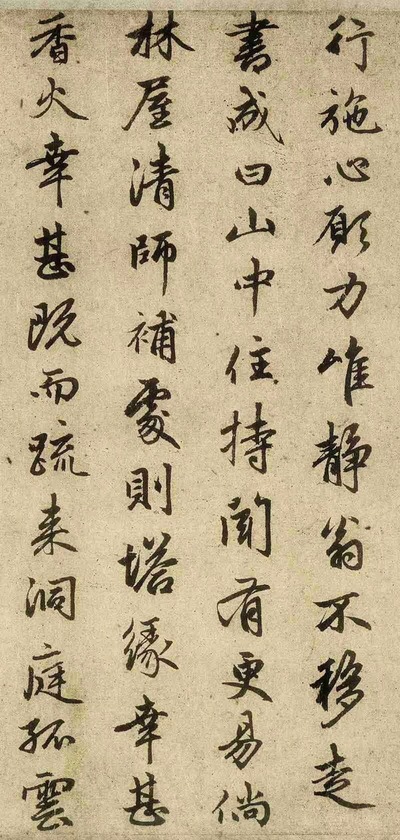 行施心願力唯靜翁不移走
書成曰山中住持聞有更易倘
林屋清師補處則塔緣幸甚
香火幸甚既而疏來洞庭孤雲